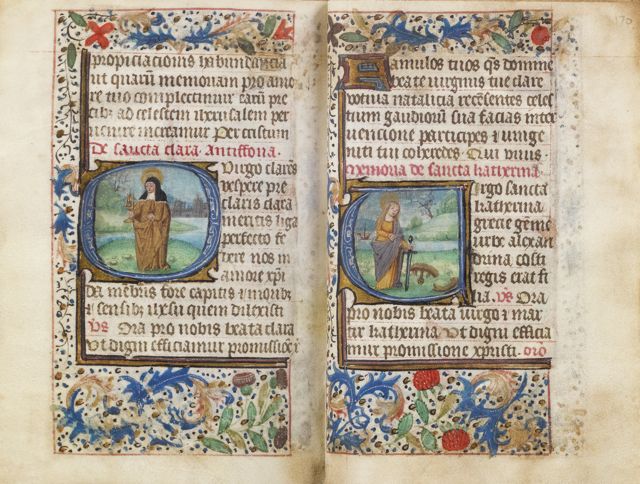 propiciacionis habundancia
ut quarum memoriam pro amo
re tuo complectimur earum pre
cibus ad celestem iherusalem per
uenire mereamur Per cristum
De sancta clara. antiffona.
Virgo clare
vespere pre
claris clara
meritis liga
perfecto fe
re nos in
amore xpi
membris fore capitis
sensibus quem dilexisti
vs Ora pro nobis beata clara
Ut digni efficiamur promissione
170
Famulos tuos qs domine
beate virginis tue clare
votiua natalicia recensentes celes
tium gaudiorum sua facias inter
uencione participes et unige
niti tui coheredes Qui viuis
memoria de sancta katherina
Virgo sancta
katherina
grecie gemē
urbe alexan
drina costi
regis erat fi
lia. vs Ora
pro nobis beata virgo et mar
tir katherina Ut digni efficia
mur promissione xpristi. oro